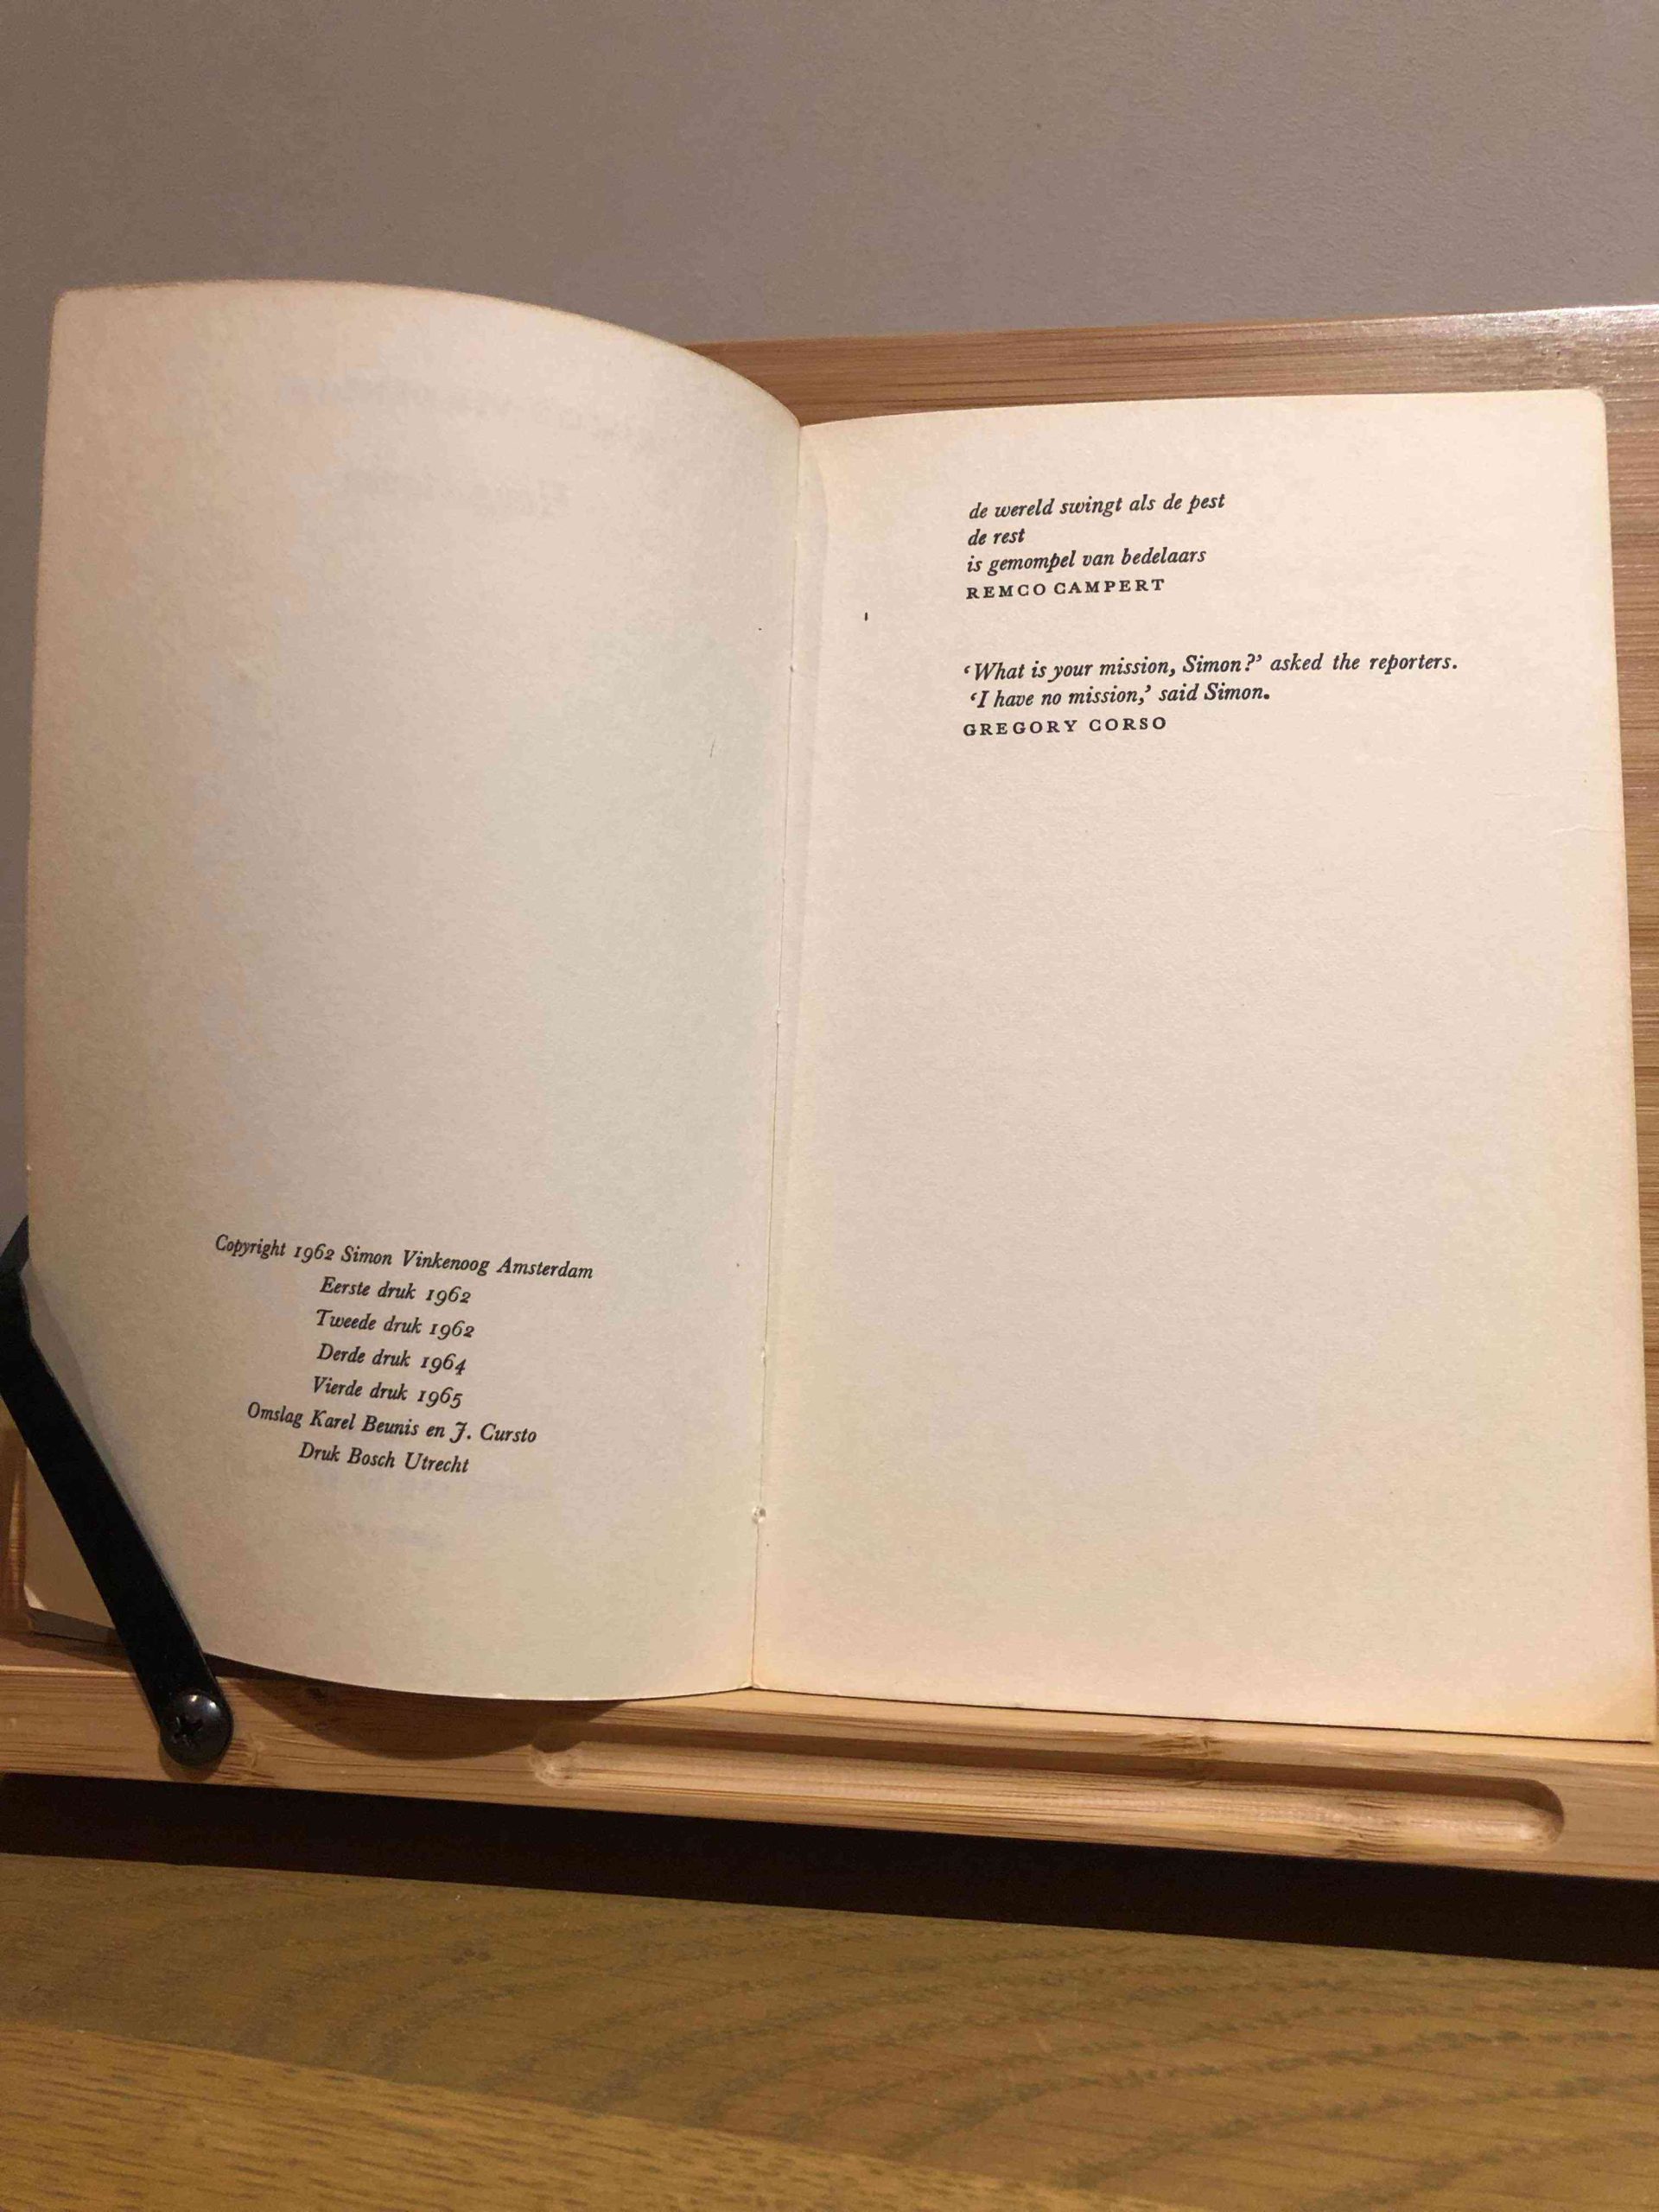 Copyright 1962 Simon Vinkenoog Amsterdam
Eerste druk 1962
Tweede druk 1962
Derde druk 1964
Vierde druk 1965
Omslag Karel Beunis en J. Cursto
Druk Bosch Utrecht
de wereld swingt als de pest
de rest
is gemompel van bedelaars
REMCO CAMPERT
‘What is your mission, Simon?’ asked the reporters.
‘I have no mission,’ said Simon.
GREGORY CORSO